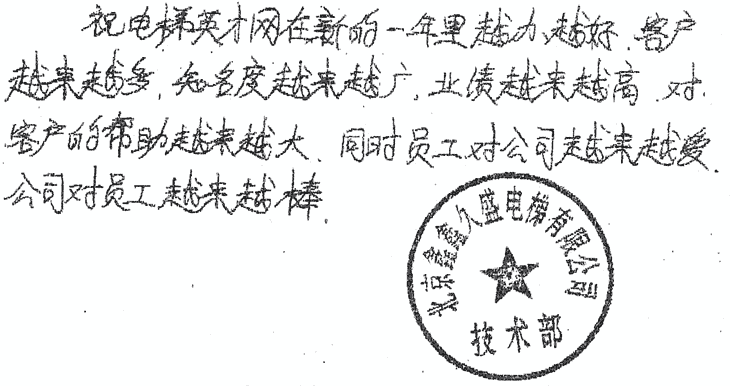 祝电梯英才网在新的一年里越办越好、客户
越来越多、知名度越来越广、业绩越来越高、对
客户的帮助越来越大、同时员工对公司越来越爱、
公司对员工越来越棒.
北京鑫鑫久盛电梯有限公司
技术部